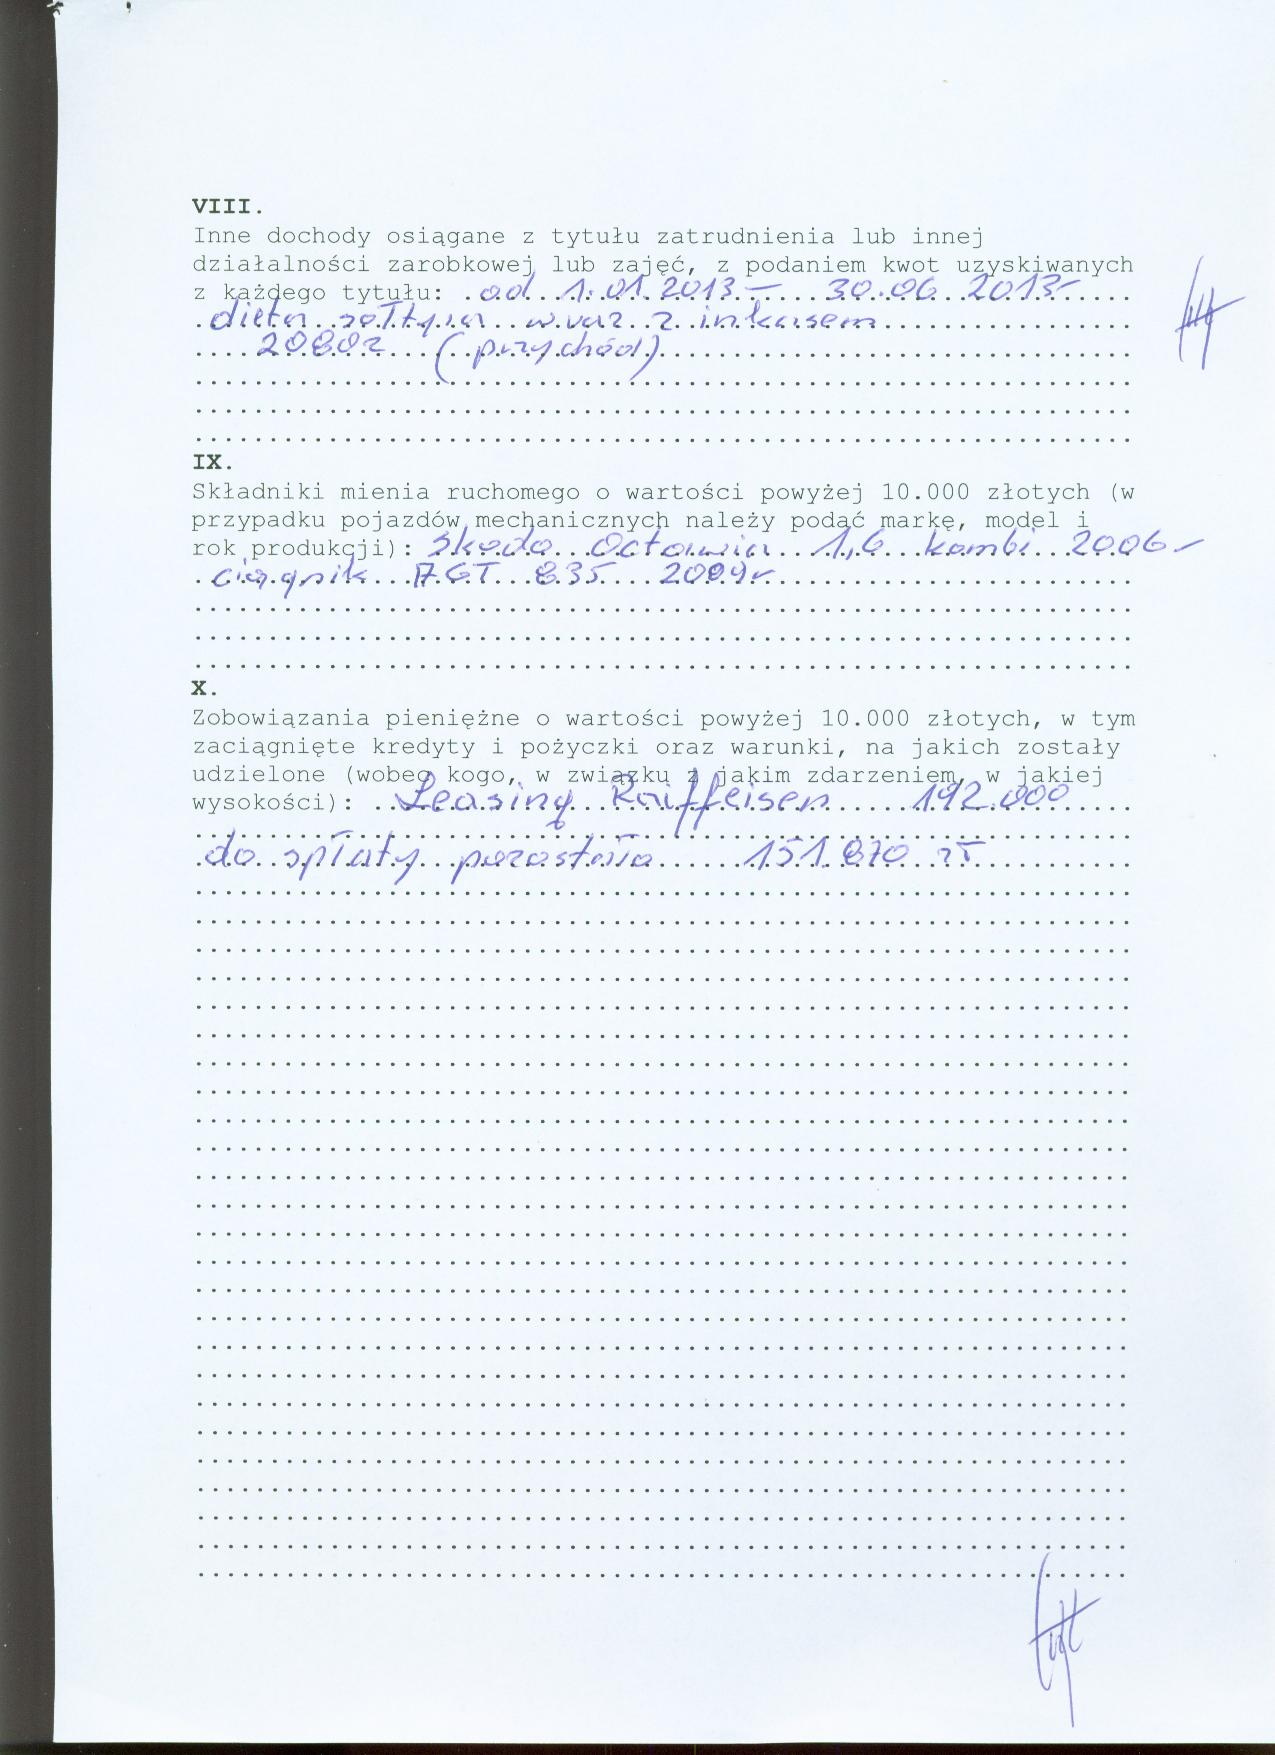 VIII.
Inne dochody osiągane z tytułu zatrudnienia lub innej
działalności zarobkowej lub zajęć, z podaniem kwot uzyskiwanych
z każdego tytułu: od 1.01.2013 - 30.06.2013r
dieta sołtysa wraz z inkasem
(przychód)
IX.
Składniki mienia ruchomego o wartości powyżej 10.000 złotych (w
przypadku pojazdów mechanicznych należy podać markę, model i
rok produkcji): Skoda Octawia 1,6 kombi 2006r
ciągnik AGT 835 2009r
X.
Zobowiązania pieniężne o wartości powyżej 10.000 złotych, w tym
zaciągnięte kredyty i pożyczki oraz warunki, na jakich zostały
udzielone (wobec kogo, w związku z jakim zdarzeniem, w jakiej
wysokości): Leasing Raiffeisen 192.000
do spłaty pozostało 151.870 zł